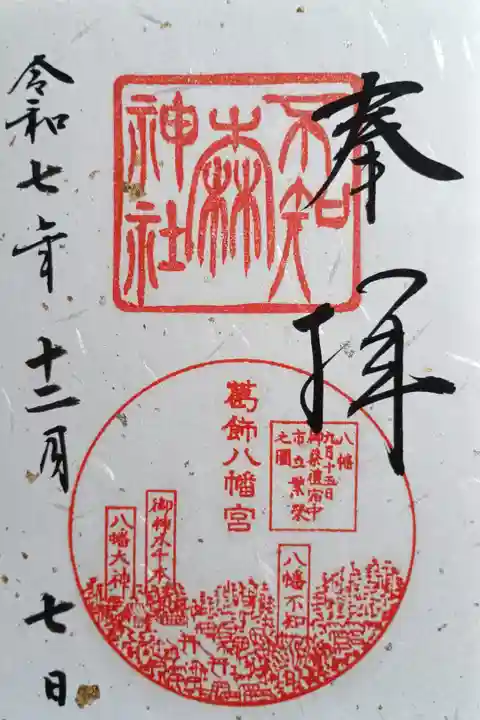 奉拝
不知
森
神社
葛飾八幡宮
八幡
九月十五日
御祭禮宿中
市立繁栄
之圖
八幡不知
御神木千本
八幡大神
令和七年十二月七日